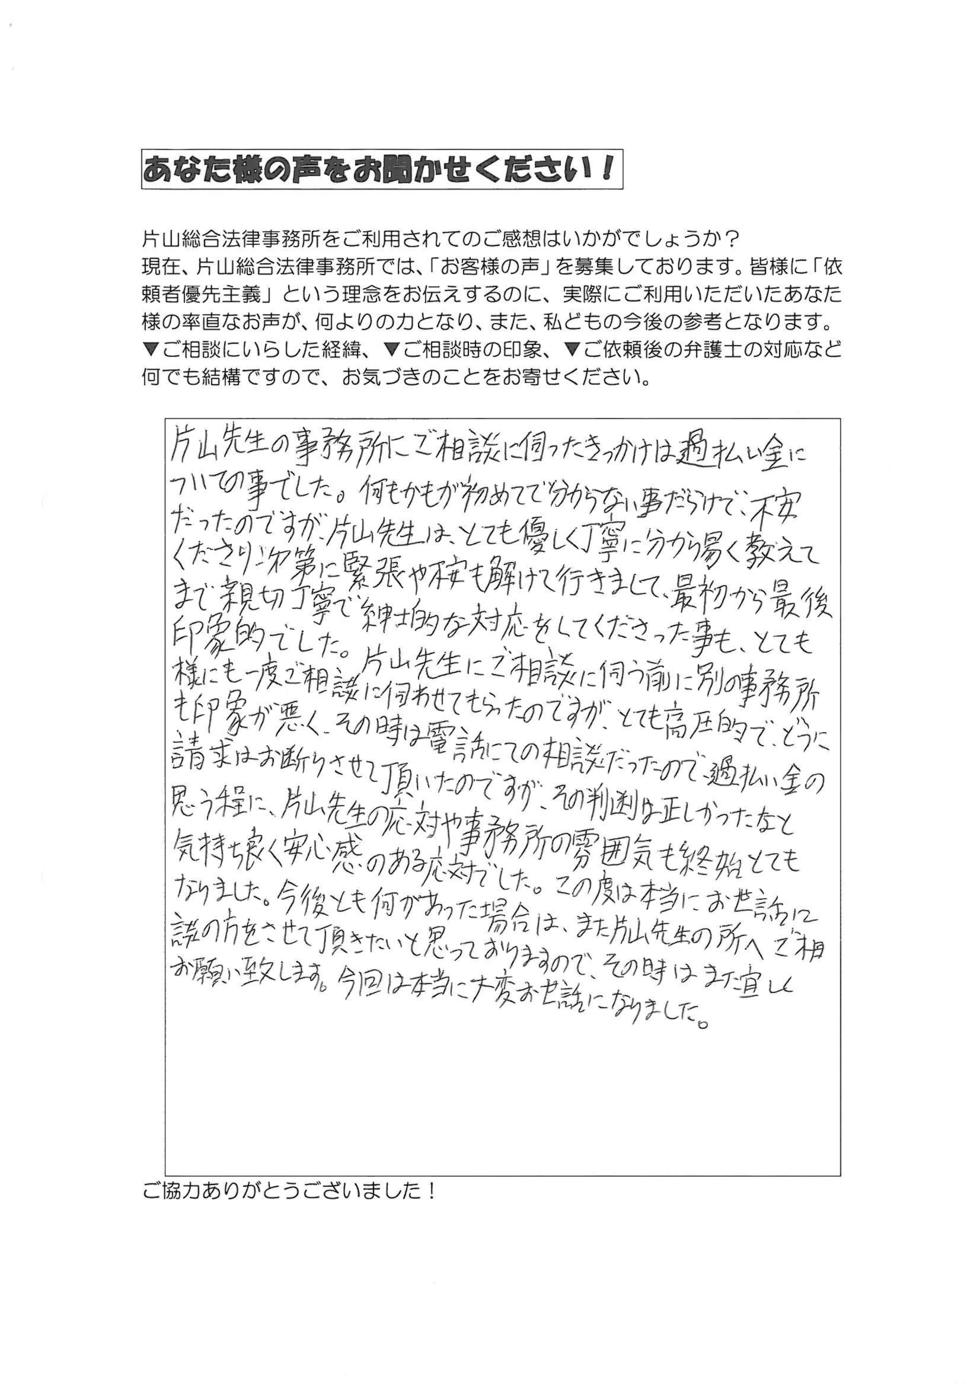 あなた様の声をお聞かせください！
片山総合法律事務所をご利用されてのご感想はいかがでしょうか？
現在、片山総合法律事務所では、「お客様の声」を募集しております。皆様に「依
頼者優先主義」という理念をお伝えするのに、実際にご利用いただいたあなた
様の率直なお声が、何よりの力となり、また、私どもの今後の参考となります。
▼ご相談にいらした経緯、▼ご相談時の印象、▼ご依頼後の弁護士の対応など
何でも結構ですので、お気づきのことをお寄せください。
片山先生の事務所にご相談に伺ったきっかけは過払い金に
ついての事でした。何もかもが初めてで分からない事だらけで、不安
だったのですが、片山先生は、とても優しく丁寧に分から易く教えて
くださり、次第に緊張や不安も解けて行きまして、最初から最後
まで親切丁寧で紳士的な対応をしてくださった事も、とても
印象的でした。片山先生にご相談に伺う前に別の事務所
様にも一度ご相談に伺わせてもらったのですが、とても高圧的で、どうに
も印象が悪く、その時は電話にての相談だったので、過払い金の
請求はお断りさせて頂いたのですが、その判断は正しかったなと
思う程に、片山先生の応対や事務所の雰囲気も終始とても
気持ち良く安心感のある応対でした。この度は本当にお世話に
なりました。今後とも何かあった場合は、また片山先生の所へご相
談の方をさせて頂きたいと思っておりますので、その時はまた宜しく
お願い致します。今回は本当に大変お世話になりました。
ご協力ありがとうございました！